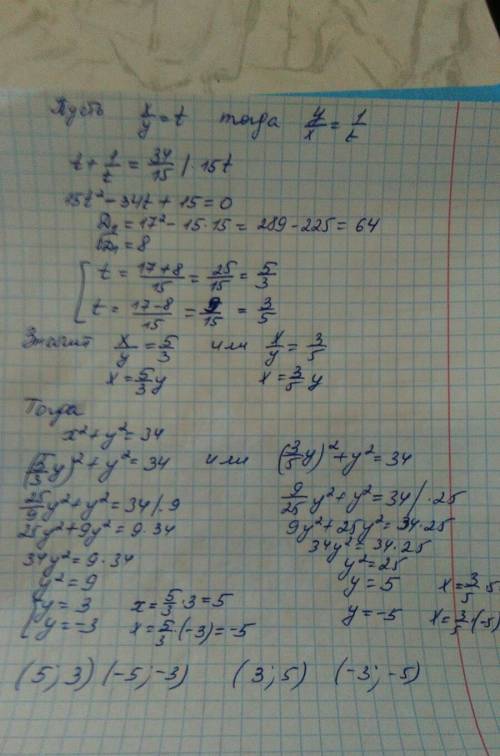 Пусть x/y = t тогда y/x = 1/t
t + 1/t = 34/15 | · 15t
15t² - 34t + 15 = 0
D₁ = 17² - 15·15 = 289 - 225 = 64
√D₁ = 8
[ t = (17+8)/15 = 25/15 = 5/3
t = (17-8)/15 = 9/15 = 3/5
Значит x/y = 5/3 или x/y = 3/5
x = 5/3 y x = 3/5 y
Тогда
x² + y² = 34
(5/3 y)² + y² = 34 или (3/5 y)² + y² = 34
25/9 y² + y² = 34 | · 9 9/25 y² + y² = 34 | · 25
25y² + 9y² = 9·34 9y² + 25y² = 34·25
34y² = 9·34 34y² = 34·25
y² = 9 y² = 25
[ y = 3 x = 5/3 · 3 = 5 y = 5 x = 3/5 · 5
y = -3 x = 5/3 · (-3) = -5 y = -5 x = 3/5 · (-5)
(5; 3) (-5; -3) (3; 5) (-3; -5)